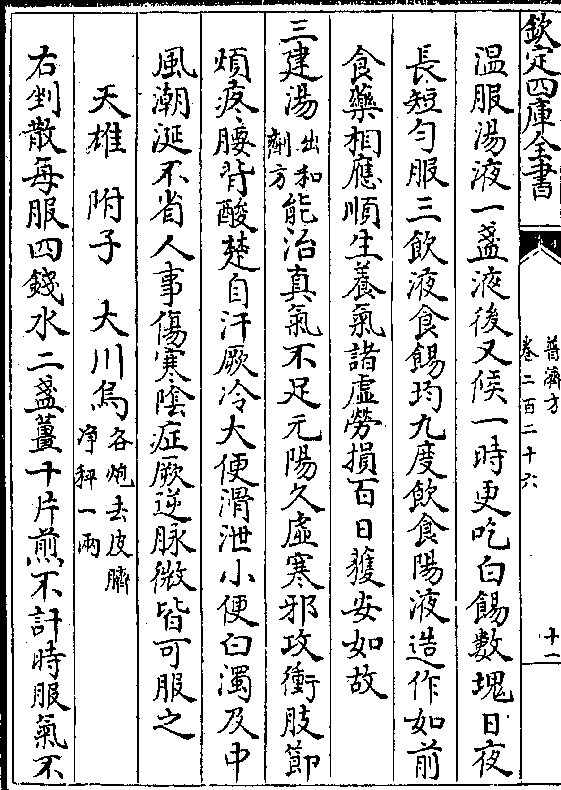 欽定四庫全書
普濟方
卷二百二十六
十一
溫服湯液一盞液後又候一時更吃白餳數塊日夜
長短勻服三飲液食餳均九度飲食陽液造作如前
食藥相應順生養氣諸虛勞損百日獲安如故
三建湯出和劑方能治真氣不足元陽久虛寒邪攻衝肢節
煩疼腰背酸楚自汗厥冷大便滑泄小便白濁及中
風潮涎不省人事傷寒陰症厥逆脉微皆可服之
天雄 附子 大川烏各炮去皮臍净秤一兩
右剉散每服四錢水二盞薑十片煎不計時服氣不